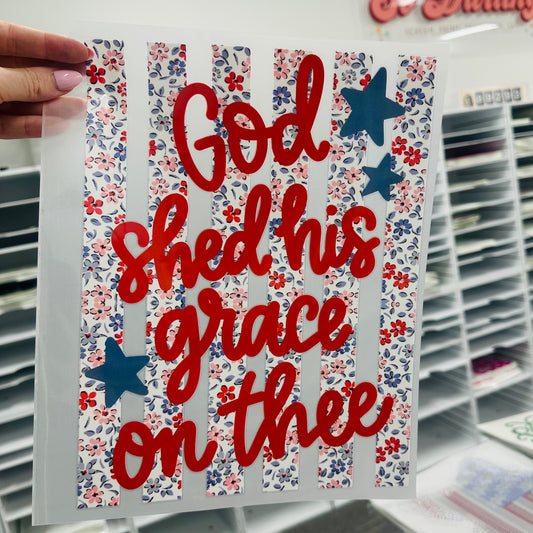 God
shed his
grace
on thee